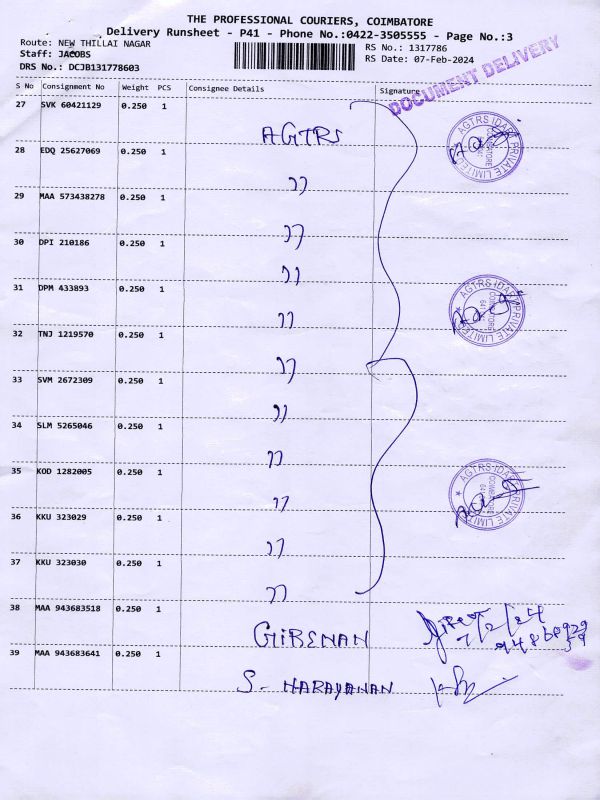 THE PROFESSIONAL COURIERS, COIMBATORE
Delivery Runsheet - P41 - Phone No.:0422-3505555 - Page No.:3
Route: NEW THILLAI NAGAR
Staff: JACOBS
DRS No.: DCJB131778603
RS No.: 1317786
RS Date: 07-Feb-2024
DOCUMENT DELIVERY
S No Consignment No Weight PCS Consignee Details Signature
27 SVK 60421129 0.250 1
AGTRS
28 EDQ 25627069 0.250 1
"
29 MAA 573438278 0.250 1
"
30 DPI 210186 0.250 1
"
31 DPM 433893 0.250 1
"
32 TNJ 1219570 0.250 1
"
33 SVM 2672309 0.250 1
"
34 SLM 5265046 0.250 1
"
35 KOD 1282005 0.250 1
"
36 KKU 323029 0.250 1
"
37 KKU 323030 0.250 1
"
38 MAA 943683518 0.250 1
GIRENAN
7/2/24
39 MAA 943683641 0.250 1
S. NARAYANAN